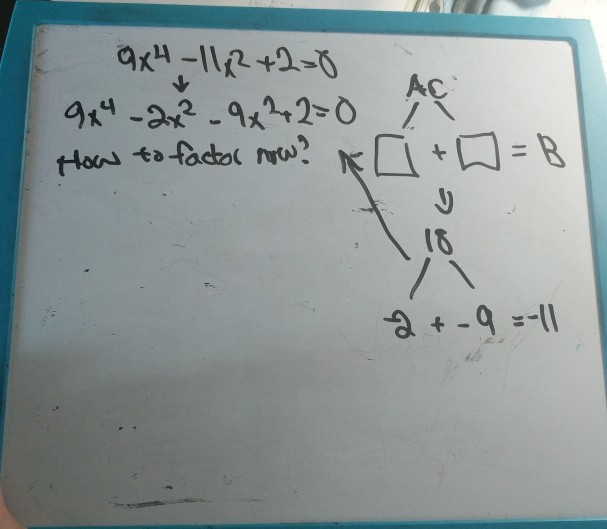 9x⁴ - 11x² + 2 = 0
↓
9x⁴ - 2x² - 9x² + 2 = 0
How to factor now?
AC
□ + □ = B
⇓
18
-2 + -9 = -11